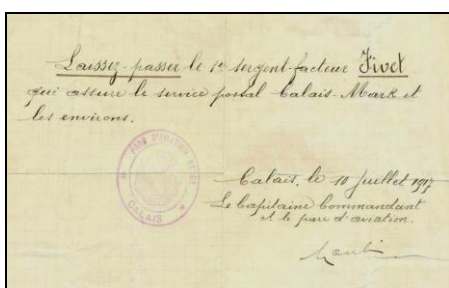 Laissez-passer le 1er sergent-facteur Fivet
qui assure le service postal Calais-Mark et
les environs.
PARC D'AVIATION
CALAIS
Calais, le 10 juillet 1917
Le Capitaine Commandant
le parc d'aviation.